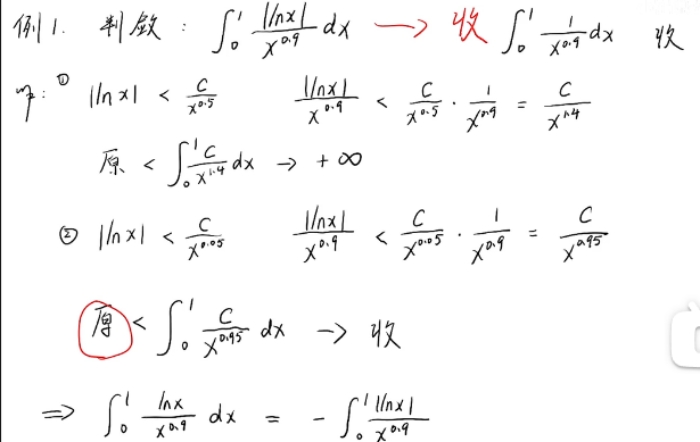 例1. 判敛: ∫₀¹ |lnx|/x^0.9 dx → 收 ∫₀¹ 1/x^0.9 dx 收
① |lnx| < C/x^0.5 |lnx|/x^0.9 < C/x^0.5 · 1/x^0.9 = C/x^1.4
原 < ∫₀¹ C/x^1.4 dx → +∞
② |lnx| < C/x^0.05 |lnx|/x^0.9 < C/x^0.05 · 1/x^0.9 = C/x^0.95
原 < ∫₀¹ C/x^0.95 dx → 收
⇒ ∫₀¹ lnx/x^0.9 dx = - ∫₀¹ |lnx|/x^0.9